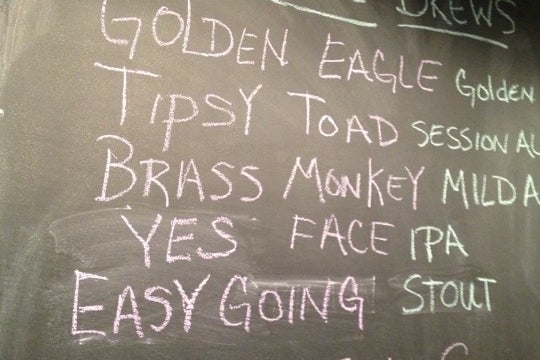 BREWS
GOLDEN EAGLE Golden
TIPSY TOAD SESSION AL
BRASS MONKEY MILD A
YES FACE IPA
EASY GOING STOUT